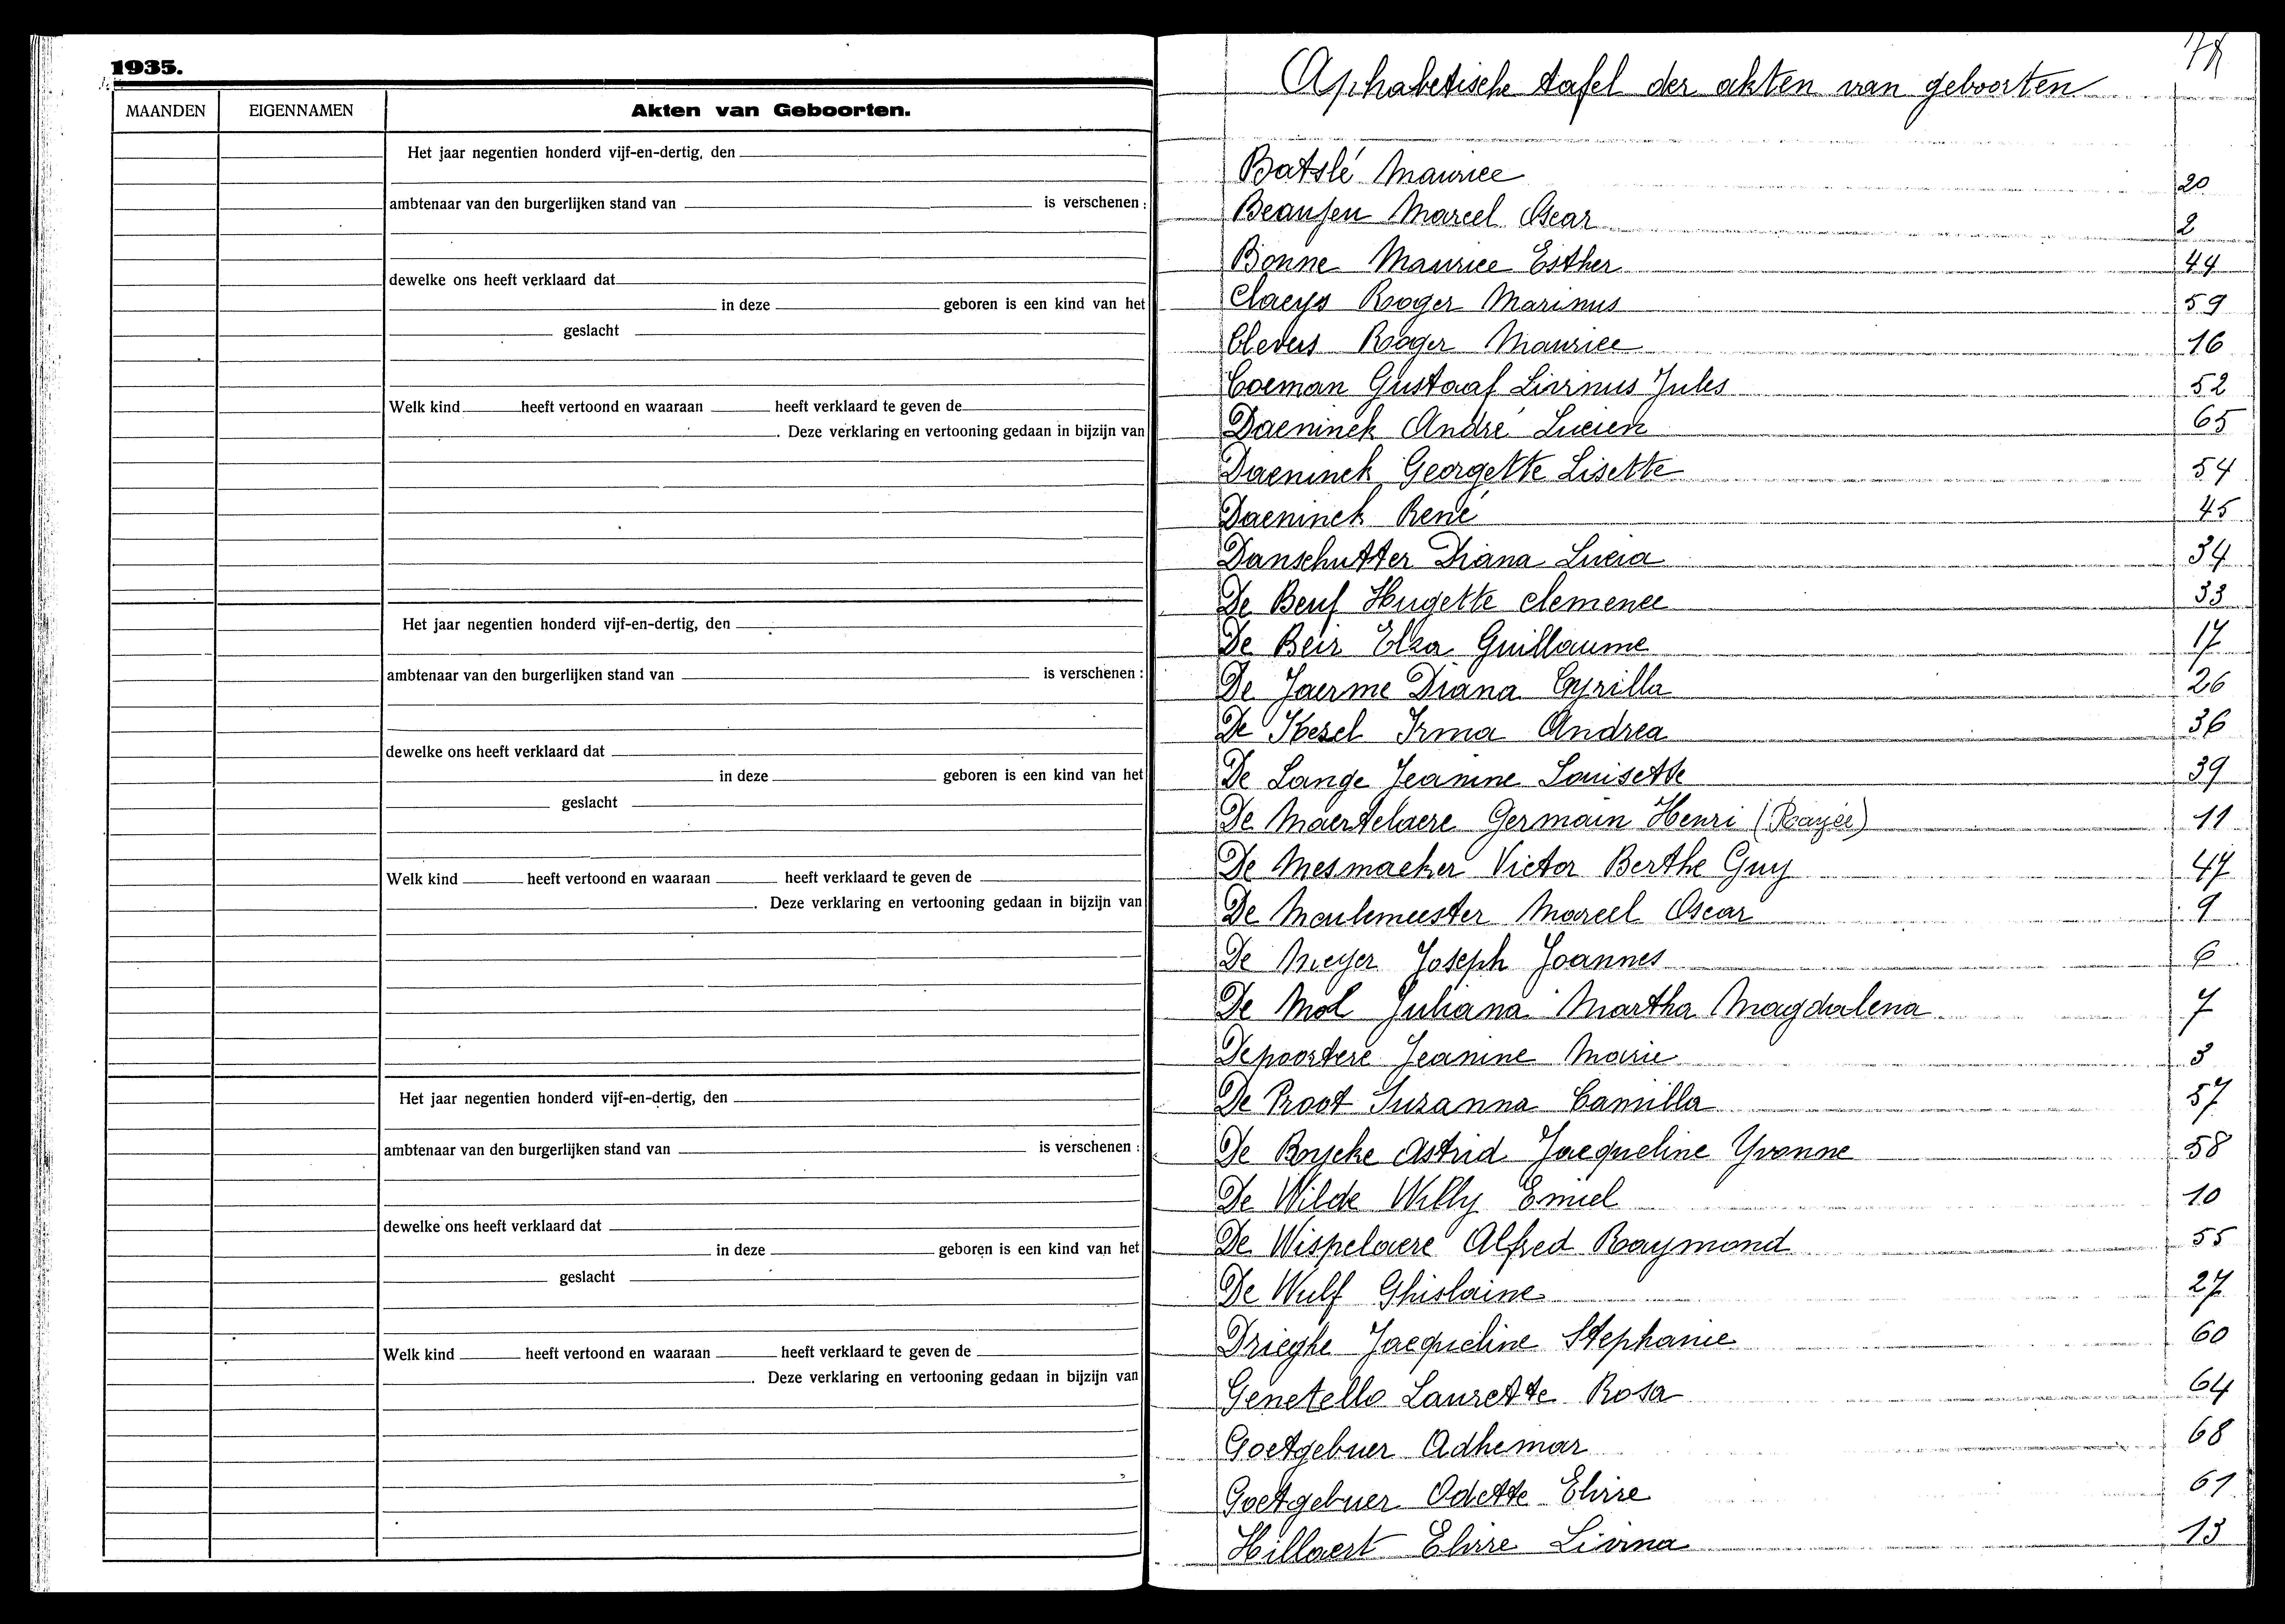 1935.
MAANDEN EIGENNAMEN Akten van Geboorten.
Het jaar negentien honderd vijf-en-dertig, den
ambtenaar van den burgerlijken stand van is verschenen :
dewelke ons heeft verklaard dat
in deze geboren is een kind van het
geslacht
Welk kind heeft vertoond en waaraan heeft verklaard te geven de
. Deze verklaring en vertooning gedaan in bijzijn van
Het jaar negentien honderd vijf-en-dertig, den
ambtenaar van den burgerlijken stand van is verschenen :
dewelke ons heeft verklaard dat
in deze geboren is een kind van het
geslacht
Welk kind heeft vertoond en waaraan heeft verklaard te geven de
. Deze verklaring en vertooning gedaan in bijzijn van
Het jaar negentien honderd vijf-en-dertig, den
ambtenaar van den burgerlijken stand van is verschenen :
dewelke ons heeft verklaard dat
in deze geboren is een kind van het
geslacht
Welk kind heeft vertoond en waaraan heeft verklaard te geven de
. Deze verklaring en vertooning gedaan in bijzijn van
Alphabetische tafel der akten van geboorten
Batslé Maurice 20
Marcel Oscar 2
Bonne Maurice Esther 44
Claeys Roger Marinus 59
Roger Maurice 16
Coeman Gustaaf Livinus Jules 52
Daeninck André Lucien 65
Daeninck Georgette Lisette 54
Daeninck René 45
Danschutter Diana Lucia 34
De Beuf Hugette Clemence 33
De Beir Elza Guillaume 17
De Jaerme Diana Cyrilla 26
De Kezel Irma Andrea 36
De Lange Jeanine Louisette 39
De Maertelaere Germain Henri (Rayée) 11
De Mesmaeker Victor Berthe Guy 47
De Meulemeester Marcel Oscar 9
De Meyer Joseph Joannes 6
De Mol Juliana Martha Magdalena 7
Depoortere Jeanine Marie 3
De Proot Suzanna Camilla 57
De Rycke Astrid Jacqueline Yvonne 58
De Wilde Willy Emiel 10
De Wispelaere Alfred Raymond 55
De Wulf Ghislaine 27
Drieghe Jacqueline Stephanie 60
Genetello Laurette Rosa 64
Goetgebuer Adhemar 68
Goetgebuer Odette Elvire 61
Hillaert Elvire Livina 13